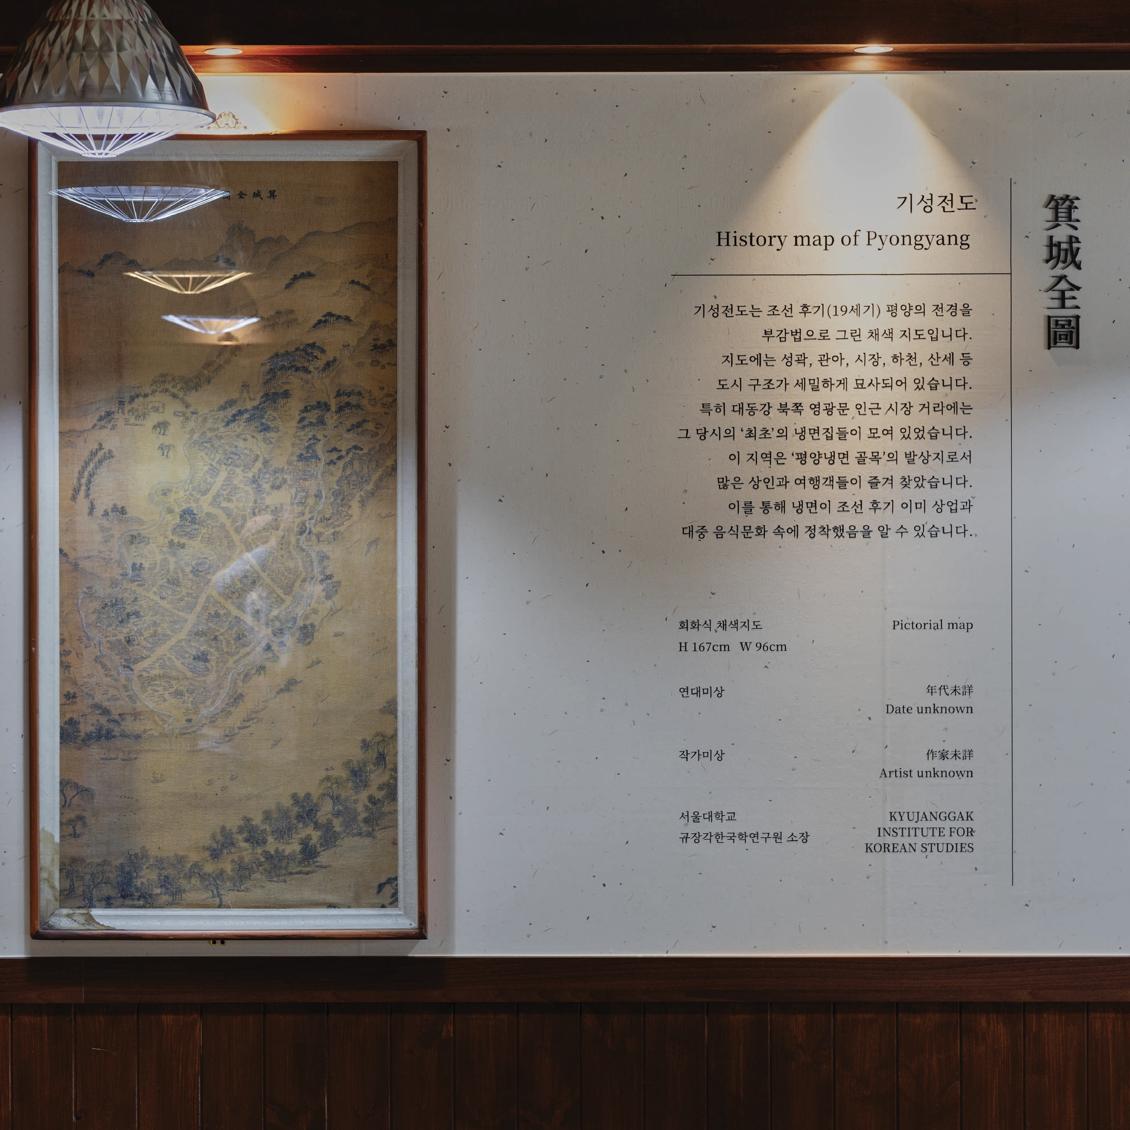 箕城全
기성전도
History map of Pyongyang
箕城全圖
기성전도는 조선 후기(19세기) 평양의 전경을
부감법으로 그린 채색 지도입니다.
지도에는 성곽, 관아, 시장, 하천, 산세 등
도시 구조가 세밀하게 묘사되어 있습니다.
특히 대동강 북쪽 영광문 인근 시장 거라에는
그 당시의 ‘최초’의 냉면집들이 모여 있었습니다.
이 지역은 ‘평양냉면 골목’의 발상지로서
많은 상인과 여행객들이 즐겨 찾았습니다.
이를 통해 냉면이 조선 후기 이미 상업과
대중 음식문화 속에 정착했음을 알 수 있습니다.
회화식 채색지도
Pictorial map
H 167cm W 96cm
연대미상
年代未詳
Date unknown
작가미상
作家未詳
Artist unknown
서울대학교
규장각한국학연구원 소장
KYUJANGGAK
INSTITUTE FOR
KOREAN STUDIES